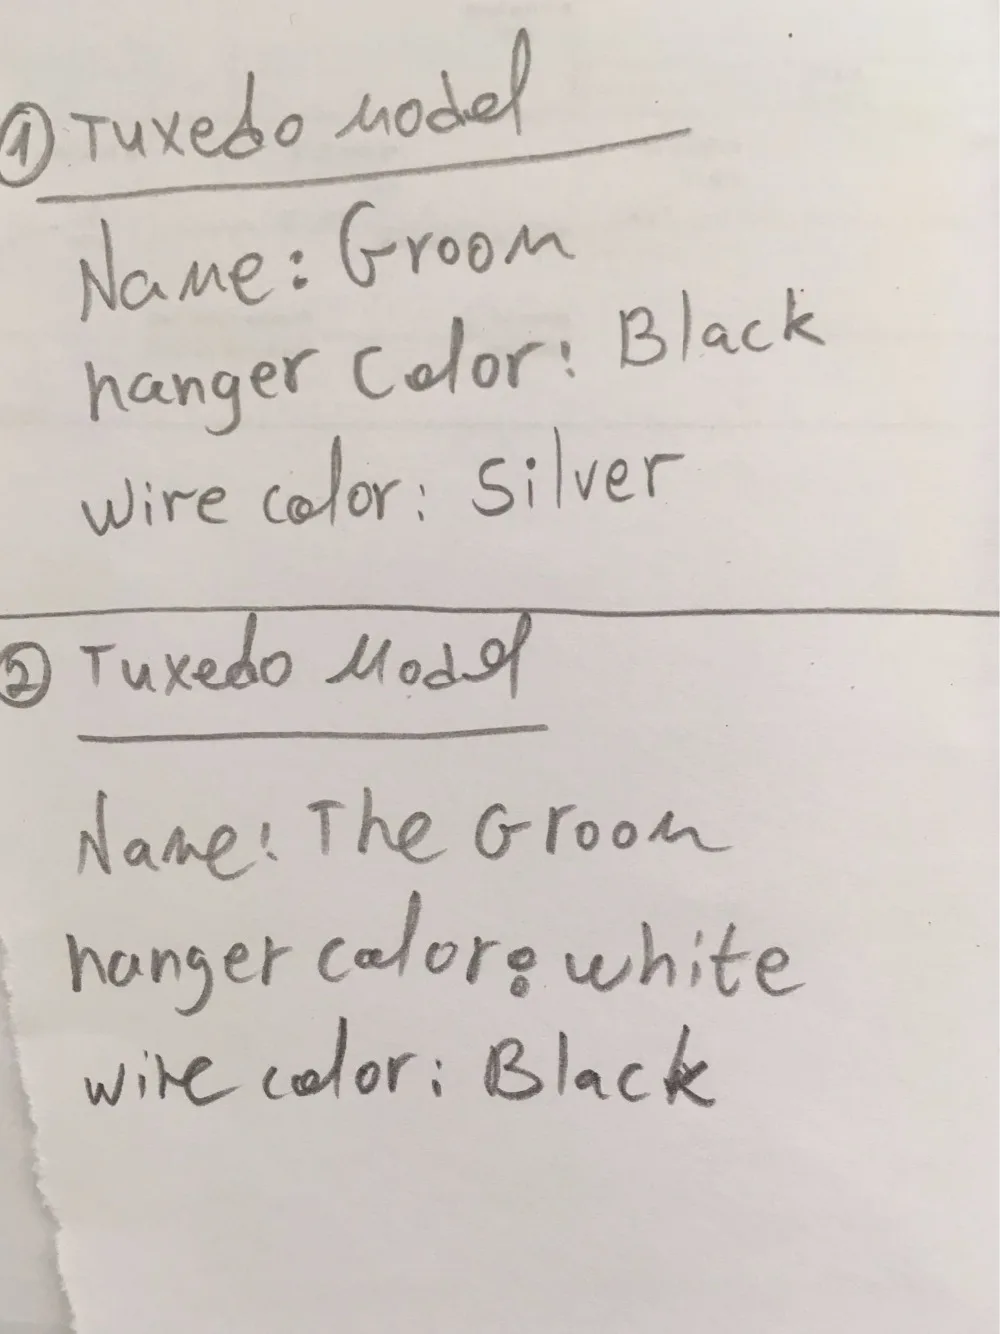 ① Tuxedo Model
Name: Groom
hanger Color: Black
wire color: Silver
② Tuxedo Model
Name: The Groom
hanger color: white
wire color: Black